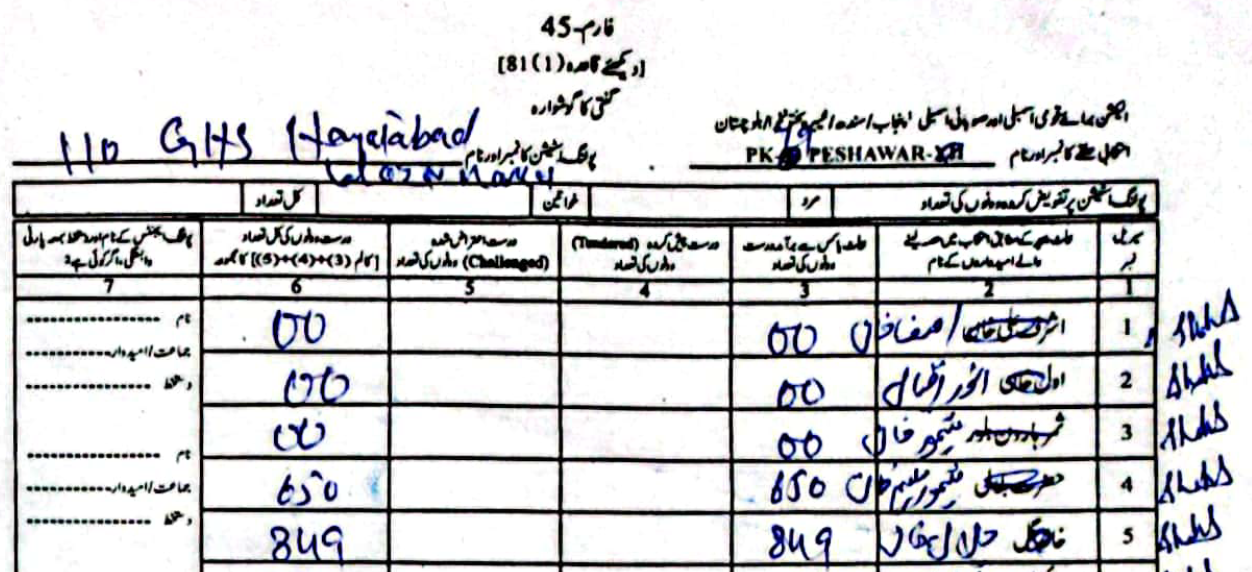 فارم-45
[دیکھئے قاعدہ (1)81]
گنتی کا گوشوارہ
الیکشن برائے قومی اسمبلی اور صوبائی اسمبلی پنجاب/سندھ/خیبر پختونخوا/بلوچستان
انتخابی حلقے کا نمبر اور نام PK- PESHAWAR- پولنگ اسٹیشن کا نمبر اور نام 110 GHS Hayatabad
پولنگ اسٹیشن پر تفویض کردہ ووٹوں کی تعداد مرد خواتین کل تعداد
سیریل نمبر
حلقے کے مطابق انتخاب میں حصہ لینے والے امیدواروں کے نام
بیلٹ باکس سے برآمد درست ووٹوں کی تعداد
درست پیش کردہ (Tendered) ووٹوں کی تعداد
درست اعتراض شدہ (Challenged) ووٹوں کی تعداد
درست ووٹوں کی کل تعداد [کالم (3)+(4)+(5)] کا مجموعہ
پولنگ ایجنٹس کے نام اور دستخط بمعہ پارٹی وابستگی، اگر کوئی ہے؟
1 2 3 4 5 6 7
1 خان 00 00
2 00 00
3 ثمر ہارون بلور تیمور خان 00 00
4 تیمور سلیم خان 650 650
5 جلال خان 849 849
نام
جماعت/امیدوار
دستخط
نام
جماعت/امیدوار
دستخط